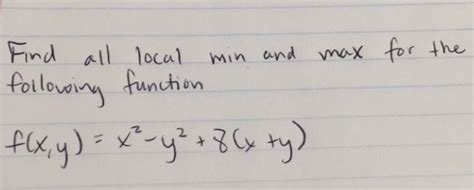 Find all local min and max for the
following function
f(x,y) = x² - y² + 8(x + y)